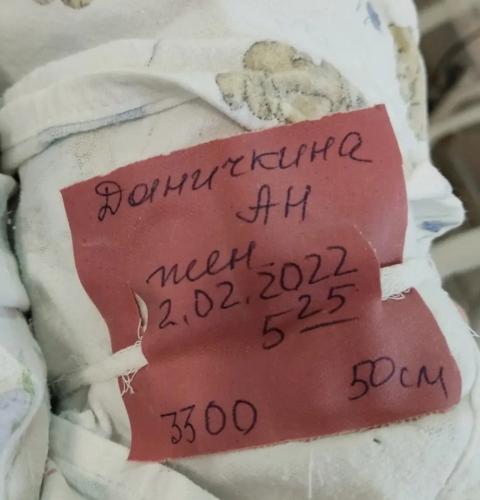 Даничкина
АН
жен
2.02.2022
5 25
50см
3300